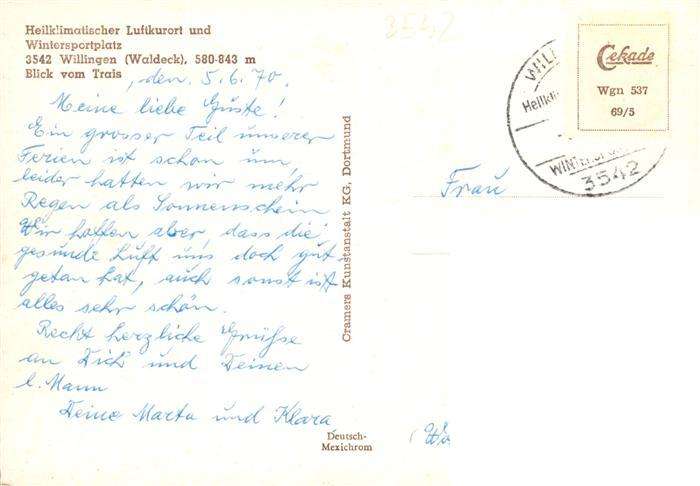 Heilklimatischer Luftkurort und
Wintersportplatz
3542 Willingen (Waldeck), 580-843 m
Blick vom Trais
, den. 5.6.70.
Meine liebe Guste!
Ein grosser Teil unserer
Ferien ist schon um
leider hatten wir mehr
Regen als Sonnenschein
Wir hoffen aber, dass die
gesunde Luft uns doch gut
getan hat, auch sonst ist
alles sehr schön.
Recht herzliche Grüsse
an Dich und Deinen
l. Mann
Deine Marta und Klara
Cramers Kunstanstalt KG, Dortmund
Deutsch-
Mexichrom
3542
Cekade
Wgn 537
69/5
WILL
Heilkli
WINTERSPO
3542
Frau